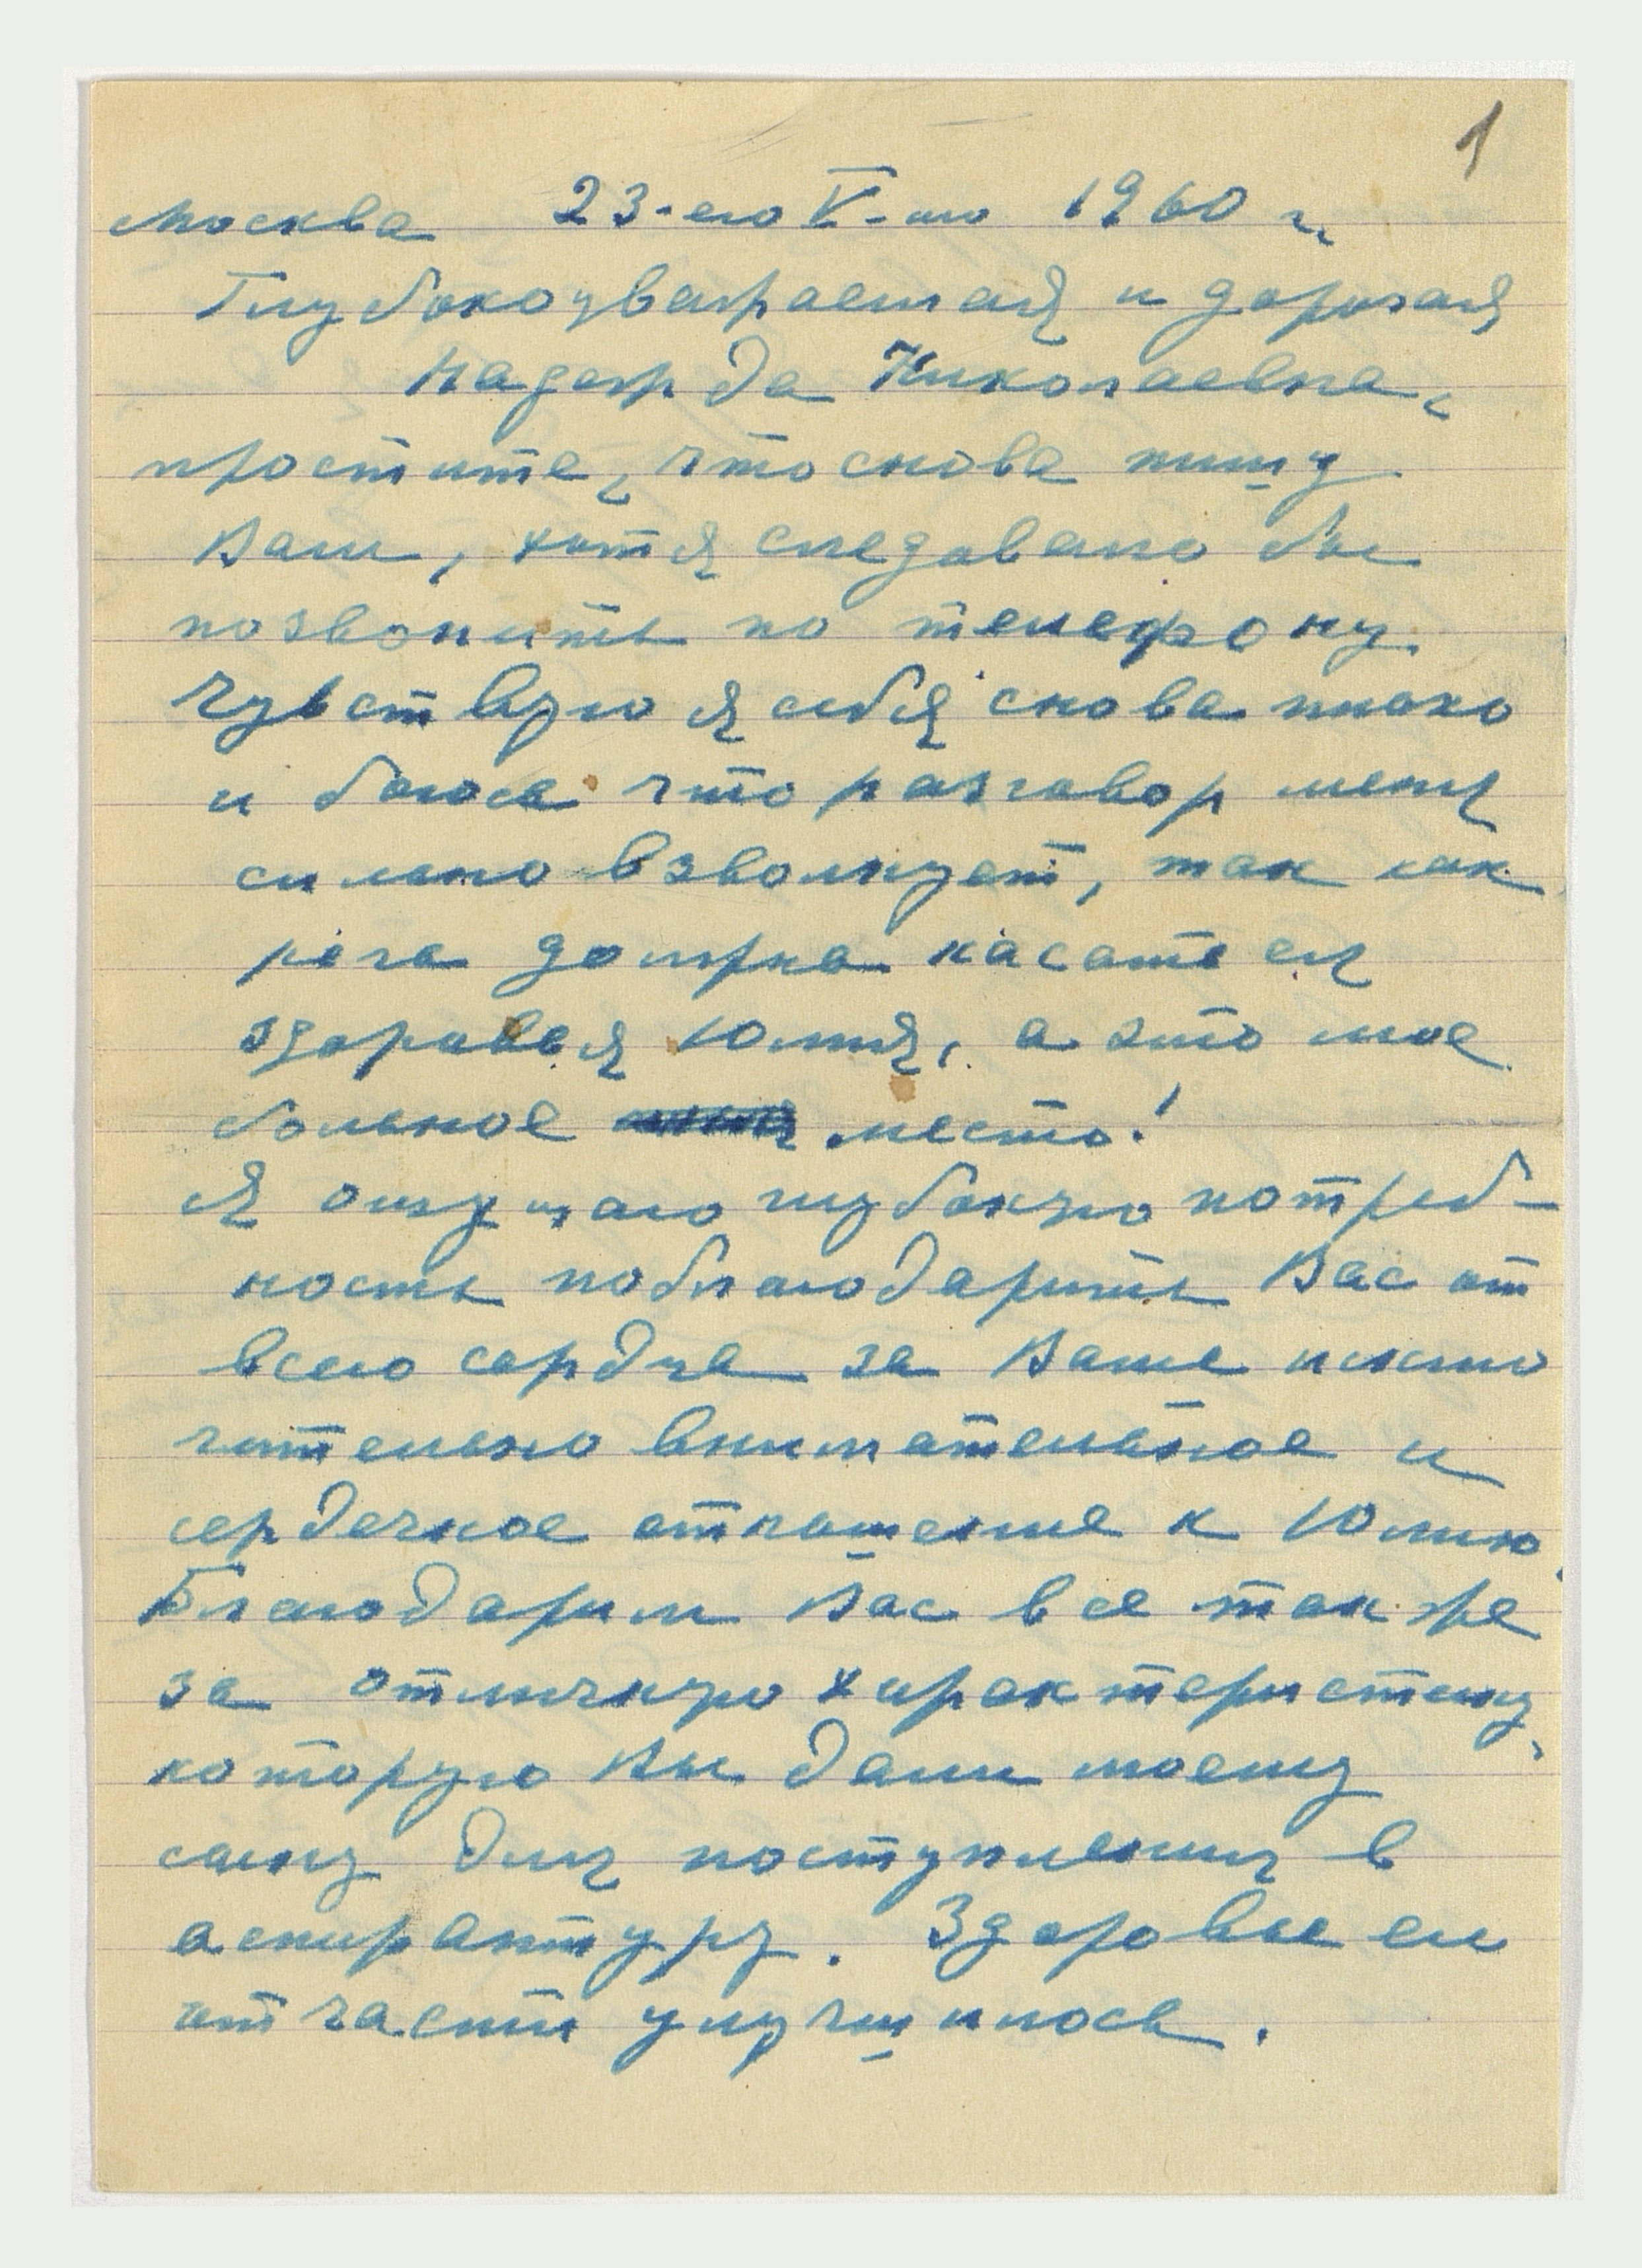 1
Москва 23-его V-го 1960 г.
Глубокоуважаемая и дорогая
Надежда Николаевна,
простите, что снова пишу
Вам, хотя следовало бы
позвонить по телефону.
Чувствую я себя снова плохо
и боюсь что разговор меня
сильно взволнует, так как
речь должна касаться
здоровья Юлия, а это мое
больное место!
Я ощущаю глубокую потреб-
ность поблагодарить Вас от
всего сердца за Ваше исклю
чительно внимательное и
сердечное отношение к Юлию.
Благодарим Вас все так же
за отличную характеристику,
которую Вы дали моему
сыну для поступления в
аспирантуру. Здоровье его
отчасти улучшилось.